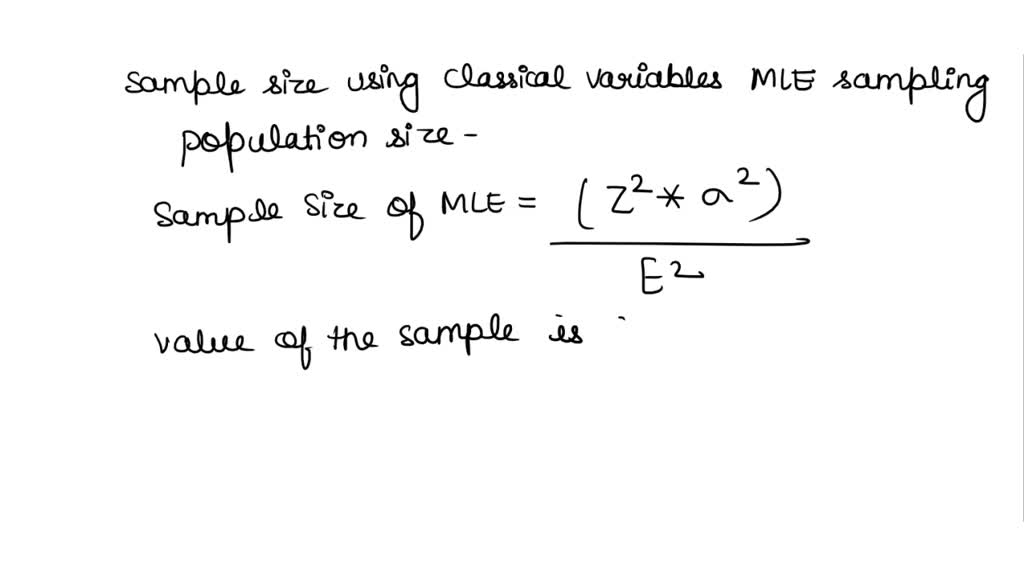 sample size using classical variables MLE sampling
population size -
sample size of MLE = (Z² * a²)
E²
value of the sample is